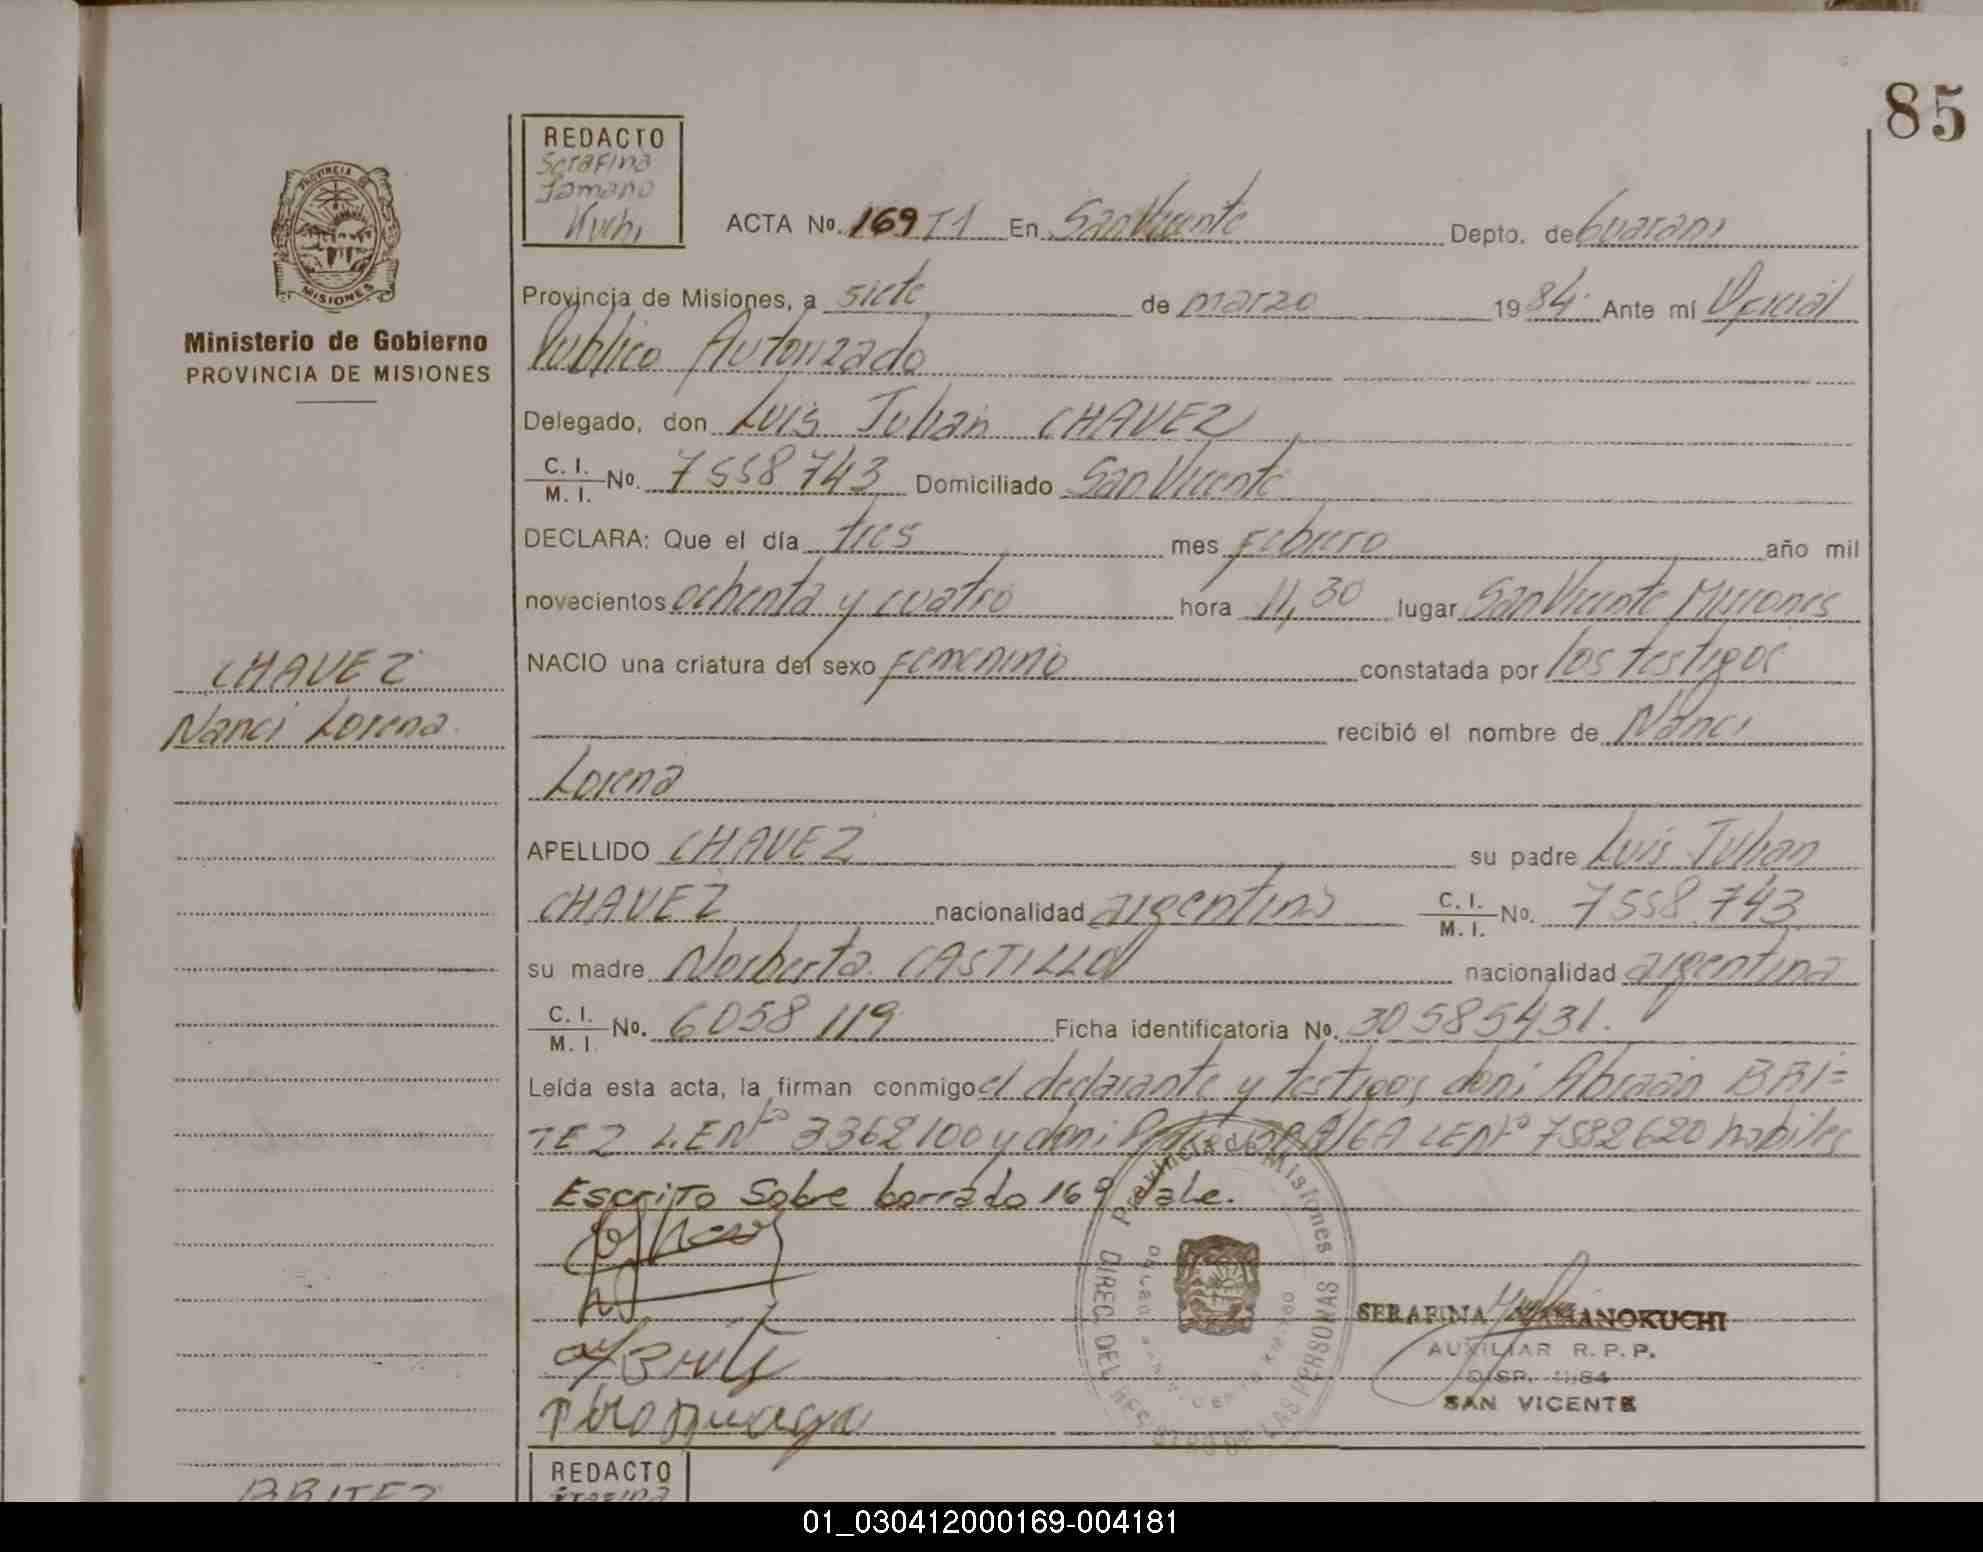 85
REDACTO
Serafina
Jamano
Kuchi
PROVINCIA DE
MISIONES
Ministerio de Gobierno
PROVINCIA DE MISIONES
ACTA No. 169 T1 En San Vicente Depto. de Guarani
Provincia de Misiones, a siete de marzo 1984. Ante mí Oficial
Publico Autorizado
Delegado, don Luis Julian CHAVEZ
C. I. / M. I. No. 7558743 Domiciliado San Vicente
DECLARA: Que el día tres mes Febrero año mil
novecientos ochenta y cuatro hora 11,30 lugar San Vicente Misiones
NACIO una criatura del sexo Femenino constatada por los testigos
recibió el nombre de Nanci
Lorena
APELLIDO CHAVEZ su padre Luis Julian
CHAVEZ nacionalidad argentina C. I. / M. I. No. 7558.743
su madre Norberta CASTILLO nacionalidad argentina
C. I. / M. I. No. 6058119 Ficha identificatoria No. 30585431.
Leída esta acta, la firman conmigo el declarante y testigos don: Abraan BRI=
TEZ L.E.Nº 3362100 y don: LE Nº 7582620 habiles
Escrito Sobre borrado 169 Vale.
CHAVEZ
Nanci Lorena
Provincia de Misiones
DIREC. DEL REGISTRO DE LAS PERSONAS
SERAFINA YAMANOKUCHI
AUXILIAR R. P. P.
DISP. 11/84
SAN VICENTE
BRITEZ
REDACTO
01_030412000169-004181